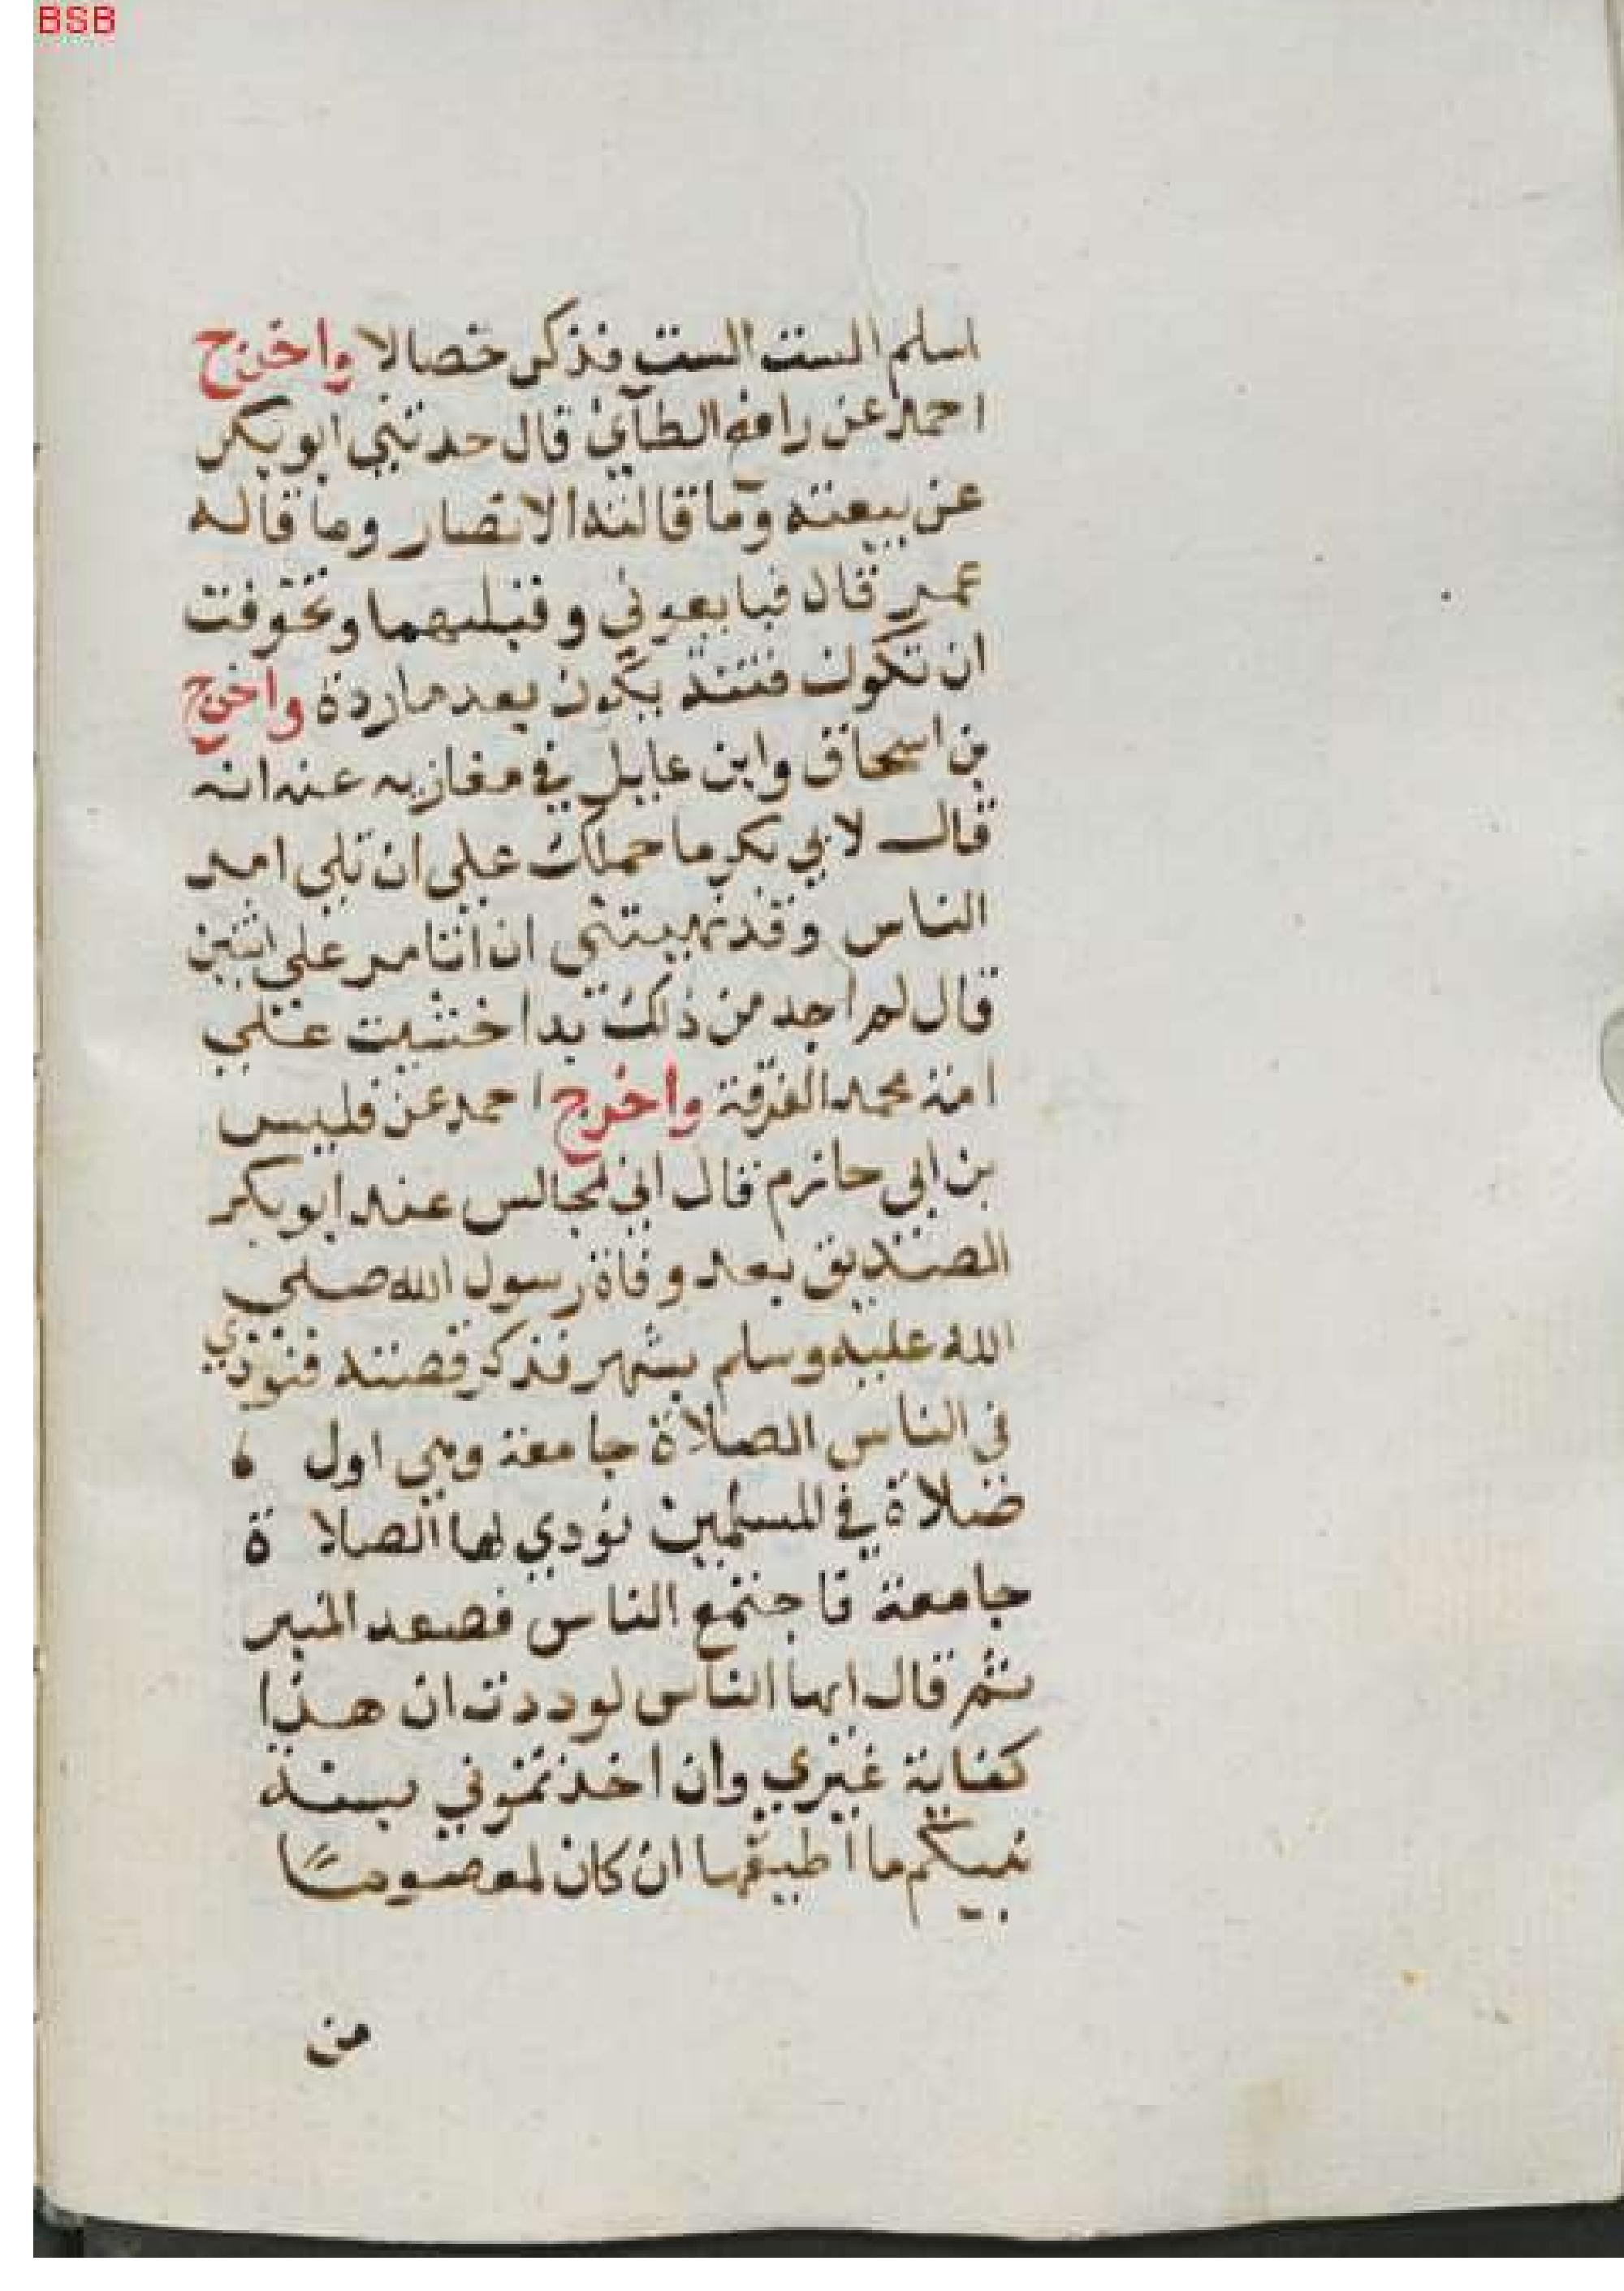 BSB
اسلم الست الست فذكر خصالا واخرج
احمد عن رافع الطآي قال حدثني ابو بكر
عن بيعته وما قالته الانصار وما قاله
عمر قال فبايعوني وقبلتهما وتخوفت
ان تكون فتنة يكون بعدها ردة واخرج
بن اسحاق وابن عايل في مغازيه عنه انه
قال لابي بكر ما حملك على ان تلي امر
الناس وقد نهيتني ان اتامر على اثنين
قال لم اجد من ذلك بدا خشيت على
امة محمد الفرقة واخرج احمد عن قليس
بن ابي حازم قال اني لجالس عند ابو بكر
الصديق بعد وفاة رسول الله صلى
الله عليه وسلم بشهر فذكر قصته فنودي
في الناس الصلاة جامعة وهي اول
ضلاة في المسلمين نودي لها الصلاة
جامعة فاجتمع الناس فصعد المنبر
ثم قال ايها الناس لوددت ان هذا
كفاية غيري وان اخذتموني بسنة
نبيكم ما اطيقها ان كان لمعصوما
من